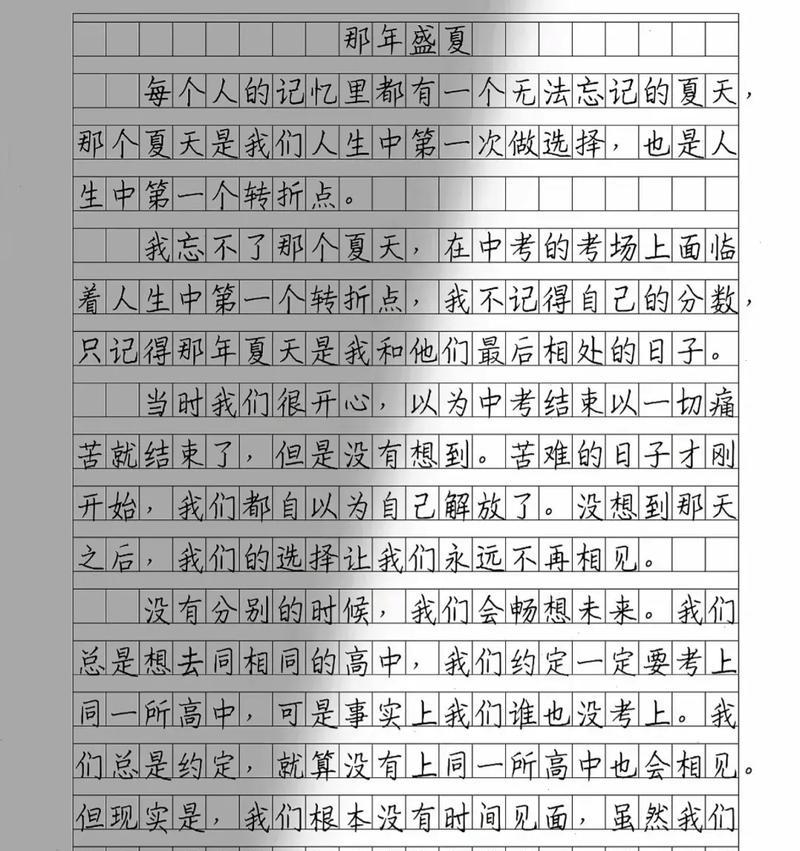 那年盛夏
每个人的记忆里都有一个无法忘记的夏天，
那个夏天是我们人生中第一次做选择，也是人
生中第一个转折点。
我忘不了那个夏天，在中考的考场上面临
着人生中第一个转折点，我不记得自己的分数，
只记得那年夏天是我和他们最后相处的日子。
当时我们很开心，以为中考结束以一切痛
苦就结束了，但是没有想到。苦难的日子才刚
开始，我们都自以为自己解放了。没想到那天
之后，我们的选择让我们永远不再相见。
没有分别的时候，我们会畅想未来。我们
总是想去同相同的高中，我们约定一定要考上
同一所高中，可是事实上我们谁也没考上。我
们总是约定，就算没有上同一所高中也会相见。
但现实是，我们根本没有时间见面，虽然我们